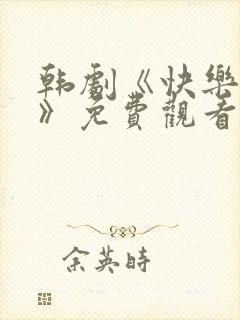 韩劇《快樂
》免費觀看
余英時